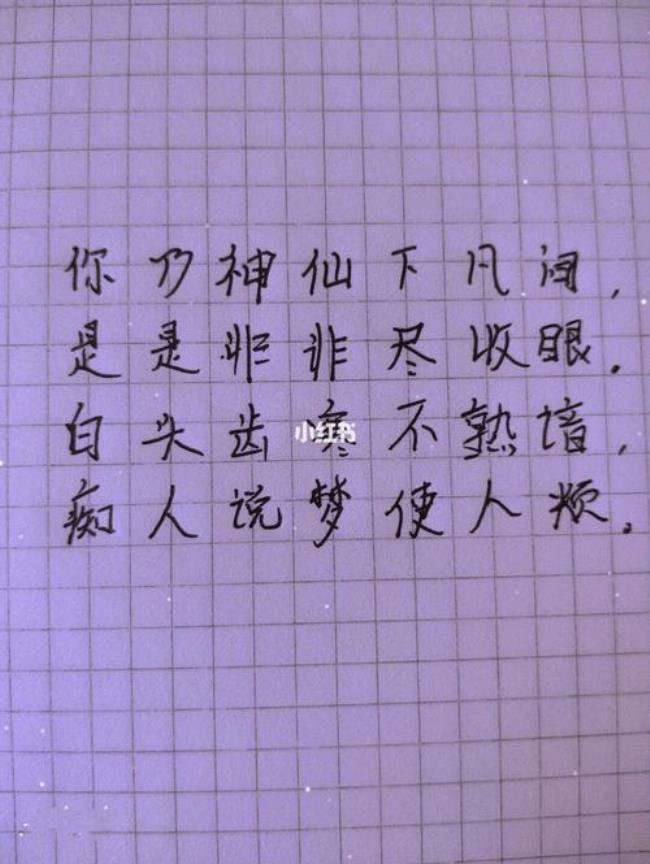 你乃神仙下凡间,
是是非非尽收眼.
白头齿寒不熟谙,
小红书
痴人说梦使人烦。